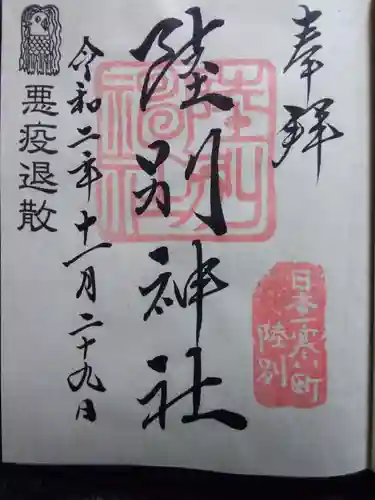 奉拝
陸別神社
陸別神社
日本一寒い町
陸別
令和二年十一月二十九日
悪疫退散